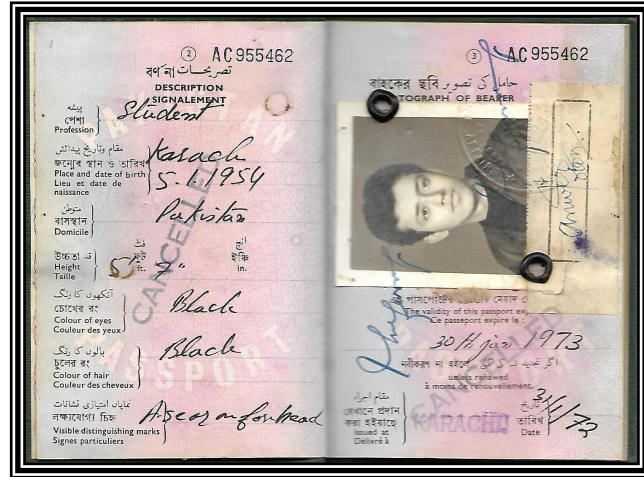 ② AC 955462
বর্ণনা تصریحات
DESCRIPTION
SIGNALEMENT
پیشہ
পেশা
Profession
Student
مقام وتاریخ پیدائش
জন্মের স্থান ও তারিখ
Place and date of birth
Lieu et date de
naissance
Karachi
5.1.1954
متوطن
বাসস্থান
Domicile
Pakistan
قد
উচ্চতা
Height
Taille
فٹ
ফুট
ft.
5'
7"
انچ
ইঞ্চি
in.
آنکھوں کا رنگ
চোখের রং
Colour of eyes
Couleur des yeux
Black
بالوں کا رنگ
চুলের রং
Colour of hair
Couleur des cheveux
Black
نمایاں امتیازی نشانات
লক্ষ্যযোগ্য চিহ্ন
Visible distinguishing marks
Signes particuliers
A scar on forehead
CANCELLED
PASSPORT
③ AC 955462
বাহকের ছবি حامل کی تصویر
TOGRAPH OF BEARER
The validity of this passport ex
Ce passeport expire le :
1973
নবীকরণ না হইলে
اگر تجدید نہ کی گئی
unless renewed
à moins de renouvellement.
مقام اجراء
যেখানে প্রদান
করা হইয়াছে
Issued at
Délivré à
KARACHI
تاریخ
তারিখ
Date